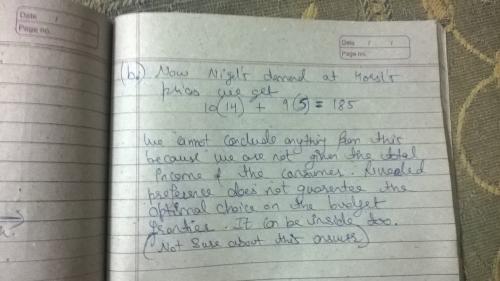 Date / /
Page no.
Date / /
Page no.
(b) Now Nigel's demand at Horst's
prices we get
10(14) + 9(5) = 185
We cannot conclude anything from this
because we are not given the total
income of the consumer. Revealed
preference does not guarantee the
optimal choice on the budget
frontier. It can be inside too.
(Not sure about this answer)